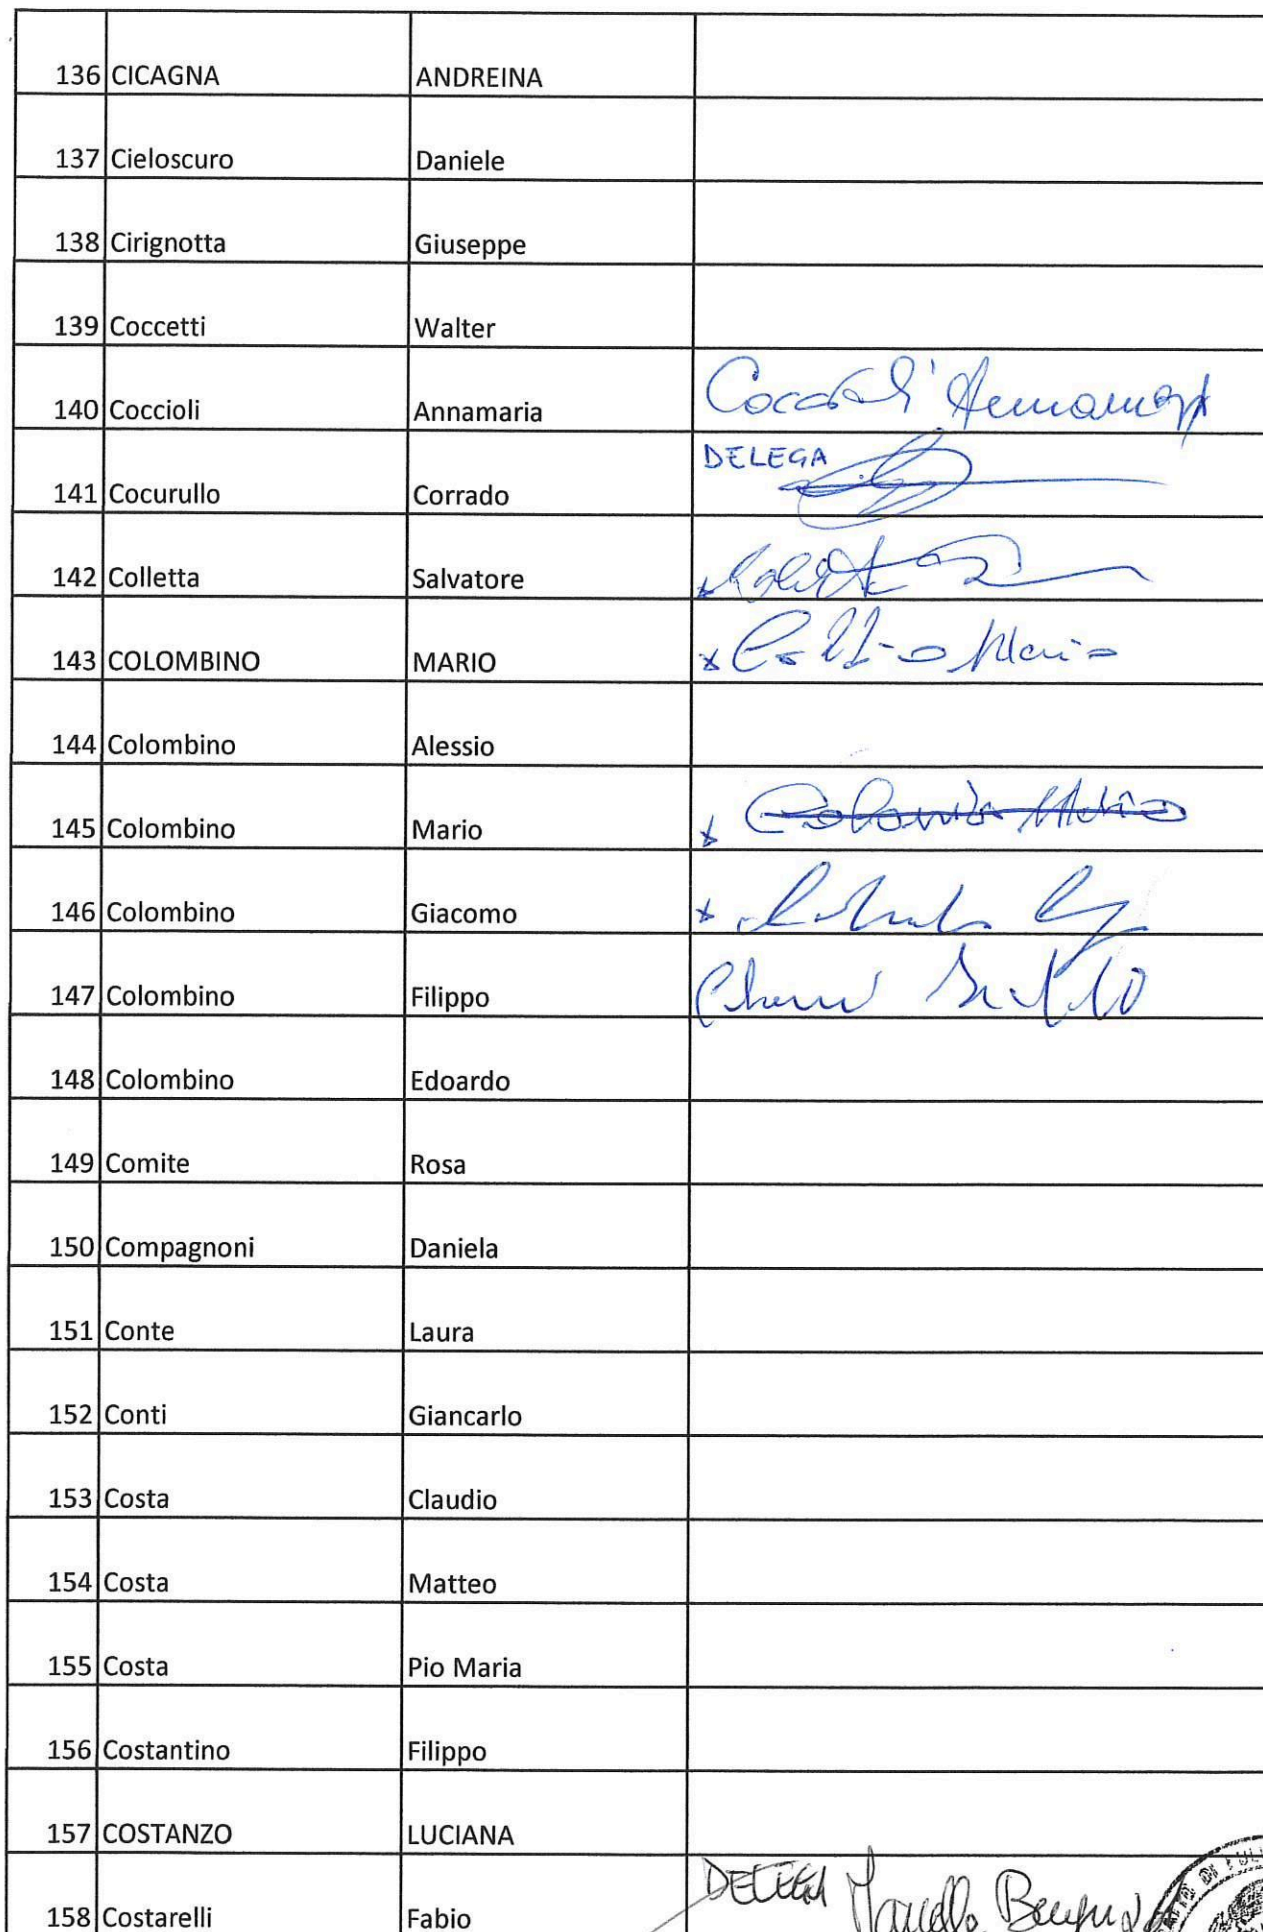 136 CICAGNA ANDREINA
137 Cieloscuro Daniele
138 Cirignotta Giuseppe
139 Coccetti Walter
140 Coccioli Annamaria Coccioli Annamaria
141 Cocurullo Corrado DELEGA
142 Colletta Salvatore
143 COLOMBINO MARIO x Mario
144 Colombino Alessio
145 Colombino Mario x Colombino Mario
146 Colombino Giacomo x
147 Colombino Filippo
148 Colombino Edoardo
149 Comite Rosa
150 Compagnoni Daniela
151 Conte Laura
152 Conti Giancarlo
153 Costa Claudio
154 Costa Matteo
155 Costa Pio Maria
156 Costantino Filippo
157 COSTANZO LUCIANA
158 Costarelli Fabio DELEGA